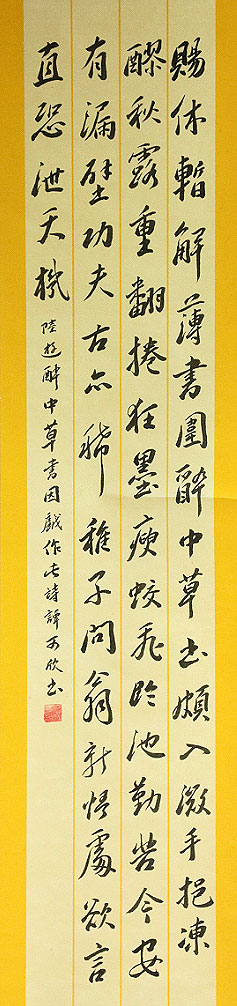 賜休暫解薄書圍醉中草書頗入微手挹凍
醪秋露重翻捲狂墨瘦蛟飛臨池勤苦今安
有漏壁功夫古亦稀稚子問翁新悟處欲言
直恐泄天機
陸游醉中草書因戲作此詩譚可欣書